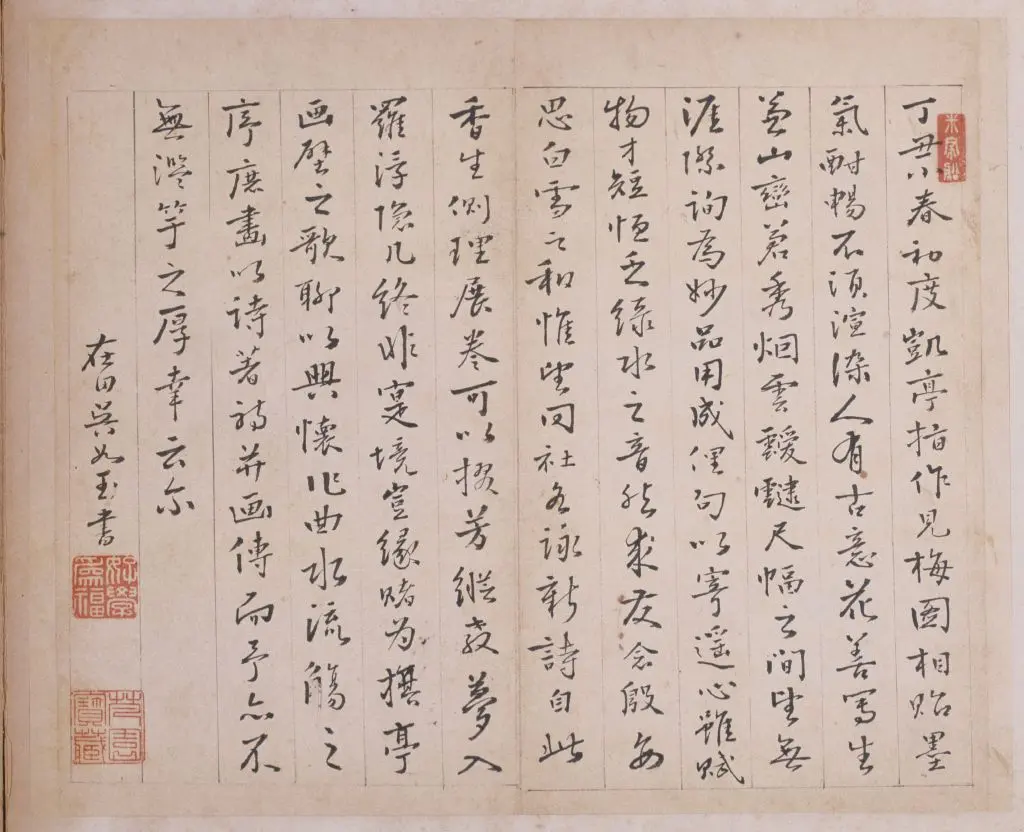 丁丑小春初度凱亭指作見梅圖相貽墨
氣酣暢不須渲染人有古意花善寫生
並山巒蒼秀烟雲靉靆尺幅之间望無
涯際詢為妙品用成俚句以寄遥心雖賦
物才短恒乏緑水之音然求友念殷每
思白雪之和惟望同社各詠新詩自此
香生側理展卷可以掇芳縱教夢入
羅浮隐几終非寔境豈緣賭为撰亭
画壁之歌聊以興懷作曲水流觴之
序庶畫以詩著詩并画傳而予亦不
無濫竽之厚幸云尔
在田吳如玉書
好學為福
寶藏